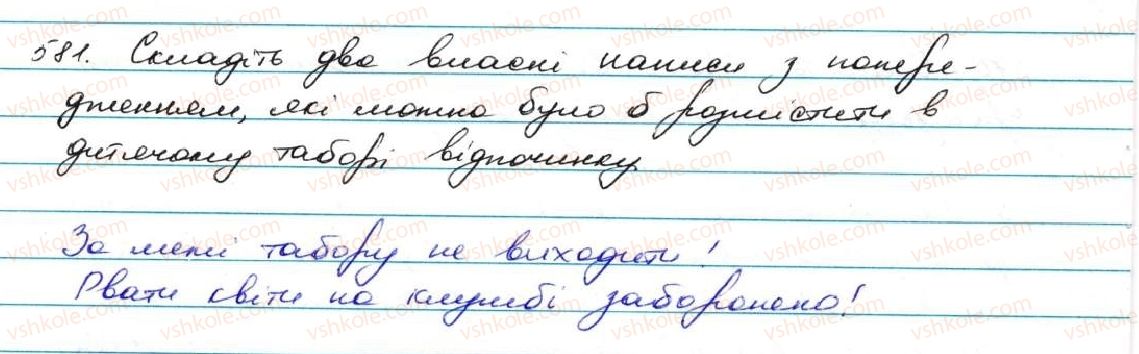 581. Складіть два власні написи з попере-
дженням, які можна було б розмістити в
дитячому таборі відпочинку.
За межі табору не виходити!
Рвати квіти на клумбі заборонено!